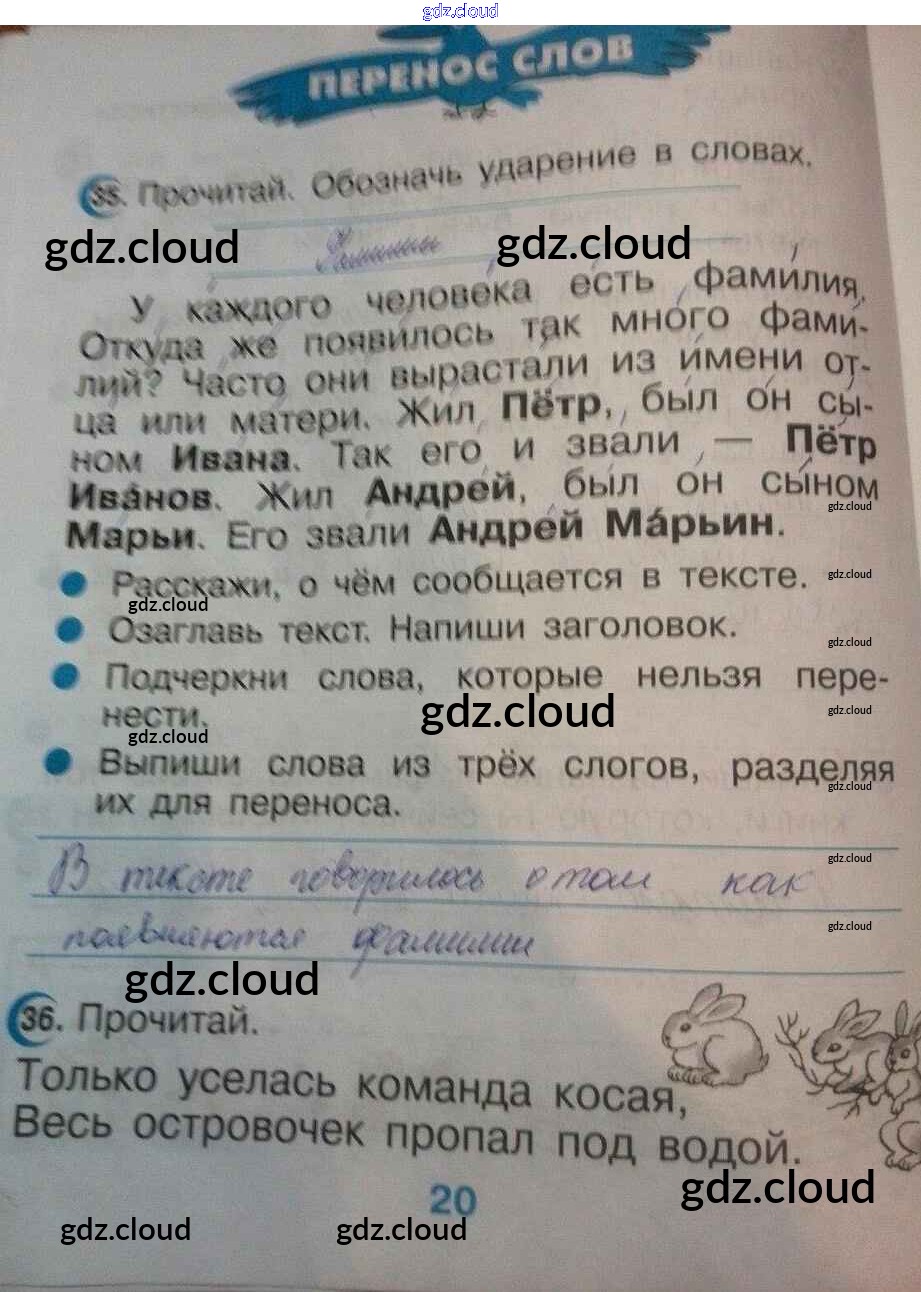 gdz.cloud
ПЕРЕНОС СЛОВ
35. Прочитай. Обозначь ударение в словах.
gdz.cloud Фамилии gdz.cloud
У каждого человека е́сть фами́лия.
Отку́да же появи́лось та́к мно́го фами́-
лий? Ча́сто они́ вы́раста́ли из и́мени от-
ца́ или ма́тери. Жи́л Пётр, бы́л о́н сы́-
ном Ива́на. Та́к его́ и зва́ли — Пётр
Ива́нов. Жи́л Андре́й, бы́л о́н сы́ном
Ма́рьи. Его зва́ли Андре́й Ма́рьин.
gdz.cloud
Расскажи, о чём сообщается в тексте.
gdz.cloud
gdz.cloud
Озаглавь текст. Напиши заголовок.
gdz.cloud
Подчеркни слова, которые нельзя пере-
нести.
gdz.cloud
gdz.cloud
gdz.cloud
Выпиши слова из трёх слогов, разделяя
gdz.cloud
их для переноса.
В тексте говорилось о том как
gdz.cloud
появляются фамилии
gdz.cloud
gdz.cloud
36. Прочитай.
Только уселась команда косая,
Весь островочек пропал под водой.
gdz.cloud
20
gdz.cloud gdz.cloud